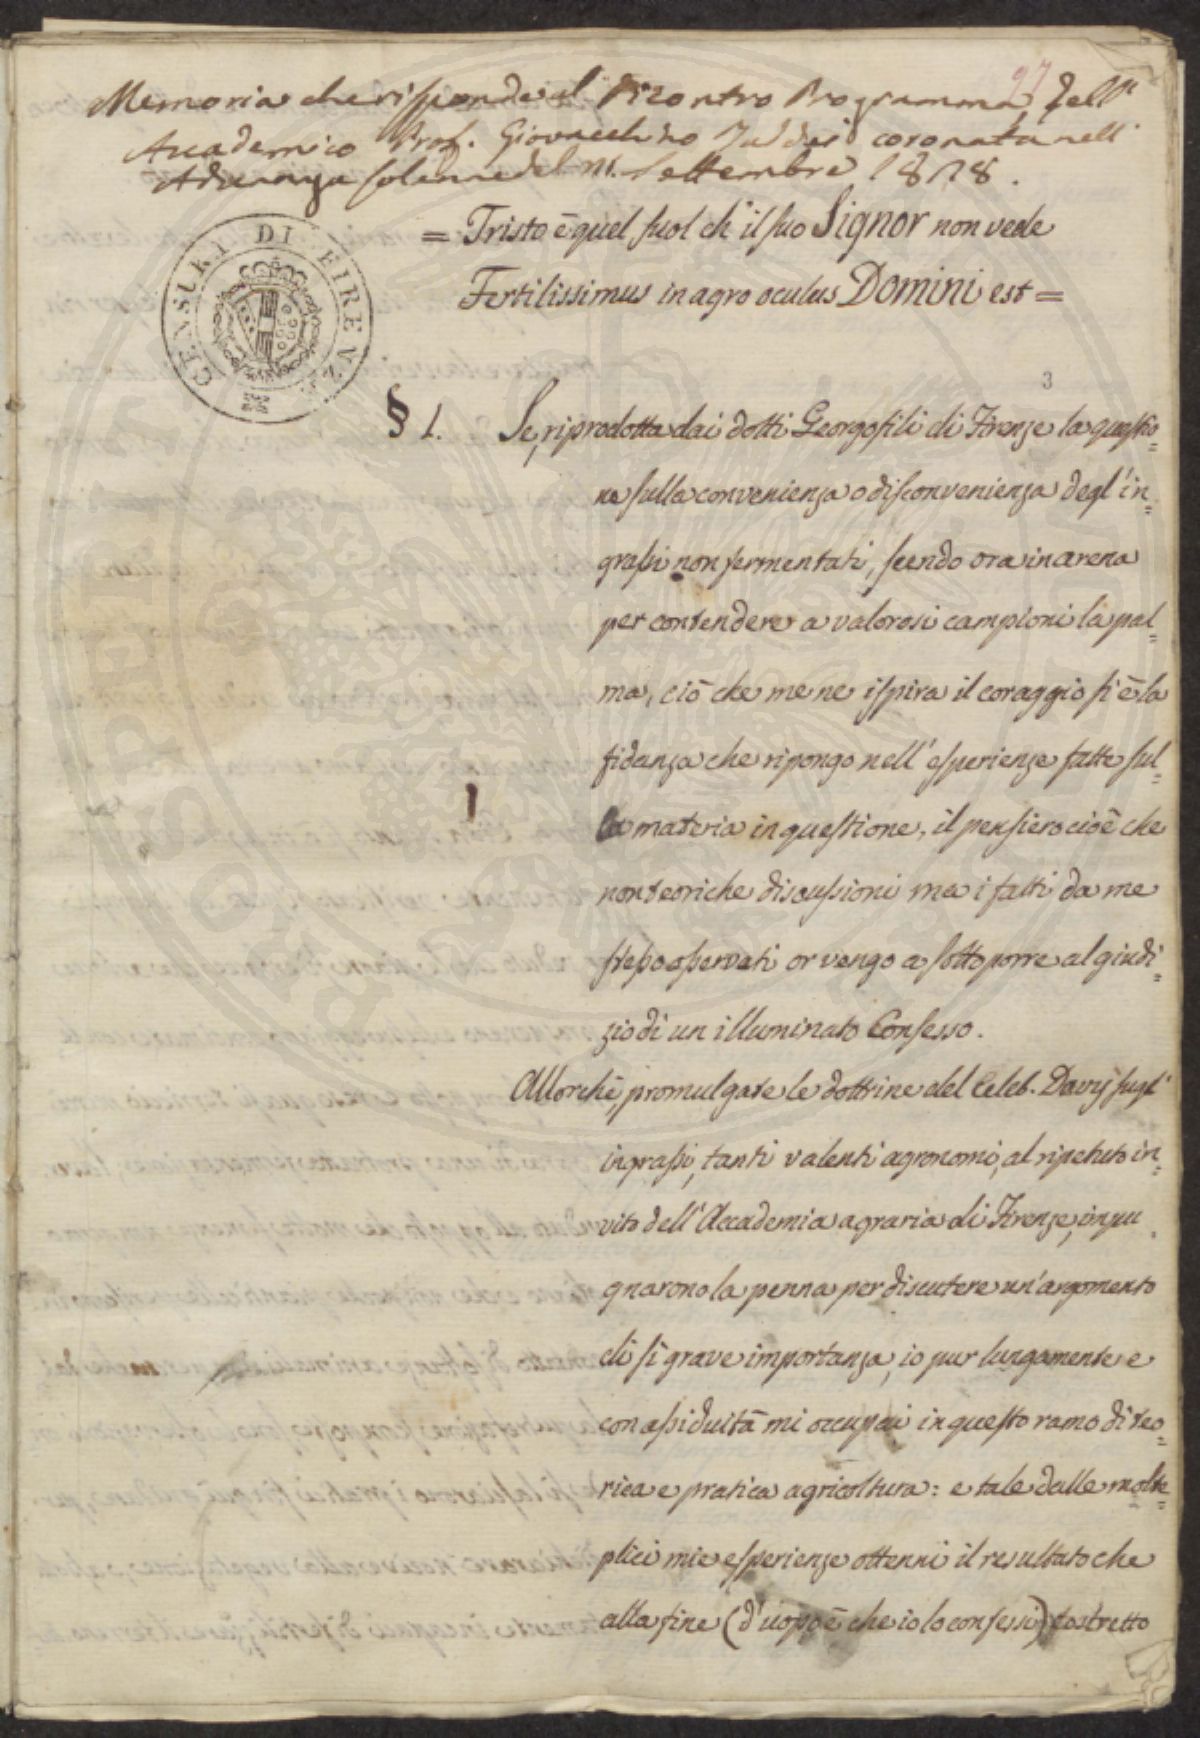 97
Memoria che risponde al Programma dell'
Accademico Prof. Giovacchino Taddei coronata nell'
Adunanza solenne del Settembre 1828.
= Tristo è quel suol ch' il suo Signor non vede
Fertilissimus in agro oculus Domini est =
CENSURA DI FIRENZE
3
§ 1. Se, riprodotta dai dotti Georgofili di Firenze la questio=
ne sulla convenienza o disconvenienza degl' in=
grassi non fermentati, scendo ora in arena
per contendere a valorosi campioni la pal=
ma, ciò che me ne ispira il coraggio si è la
fidanza che ripongo nell' esperienze fatte sul=
la materia in questione, il pensiero cioè che
non teoriche discussioni ma i fatti da me
stesso osservati or vengo a sottoporre al giudi=
zio di un illuminato Consesso.
Allorchè, promulgate le dottrine del Celeb. Davy sugl'
ingrassi, tanti valenti agronomi, al ripetuto in=
vito dell' Accademia agraria di Firenze, inpu=
gnarono la penna per discutere un' argomento
di sì grave importanza, io pur lungamente e
con assiduità mi occupai in questo ramo di teo=
rica e pratica agricoltura: e tale dalle molte=
plici mie esperienze ottenni il resultato che
alla fine (d' uopo è che io lo confessi) costretto